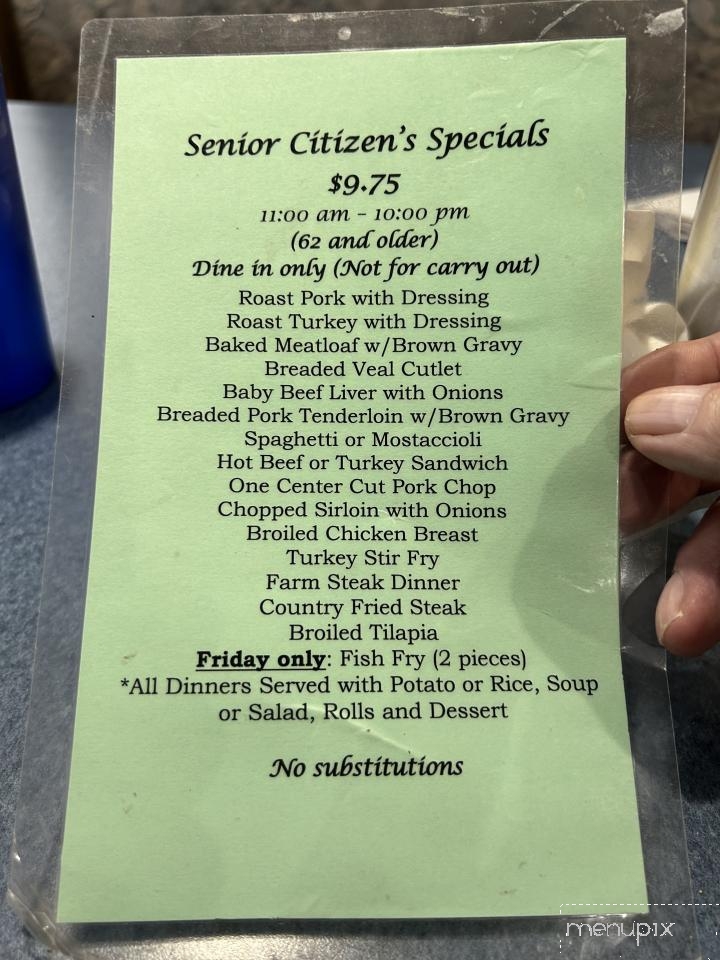 Senior Citizen's Specials
$9.75
11:00 am - 10:00 pm
(62 and older)
Dine in only (Not for carry out)
Roast Pork with Dressing
Roast Turkey with Dressing
Baked Meatloaf w/Brown Gravy
Breaded Veal Cutlet
Baby Beef Liver with Onions
Breaded Pork Tenderloin w/Brown Gravy
Spaghetti or Mostaccioli
Hot Beef or Turkey Sandwich
One Center Cut Pork Chop
Chopped Sirloin with Onions
Broiled Chicken Breast
Turkey Stir Fry
Farm Steak Dinner
Country Fried Steak
Broiled Tilapia
Friday only: Fish Fry (2 pieces)
*All Dinners Served with Potato or Rice, Soup
or Salad, Rolls and Dessert
No substitutions
menupix